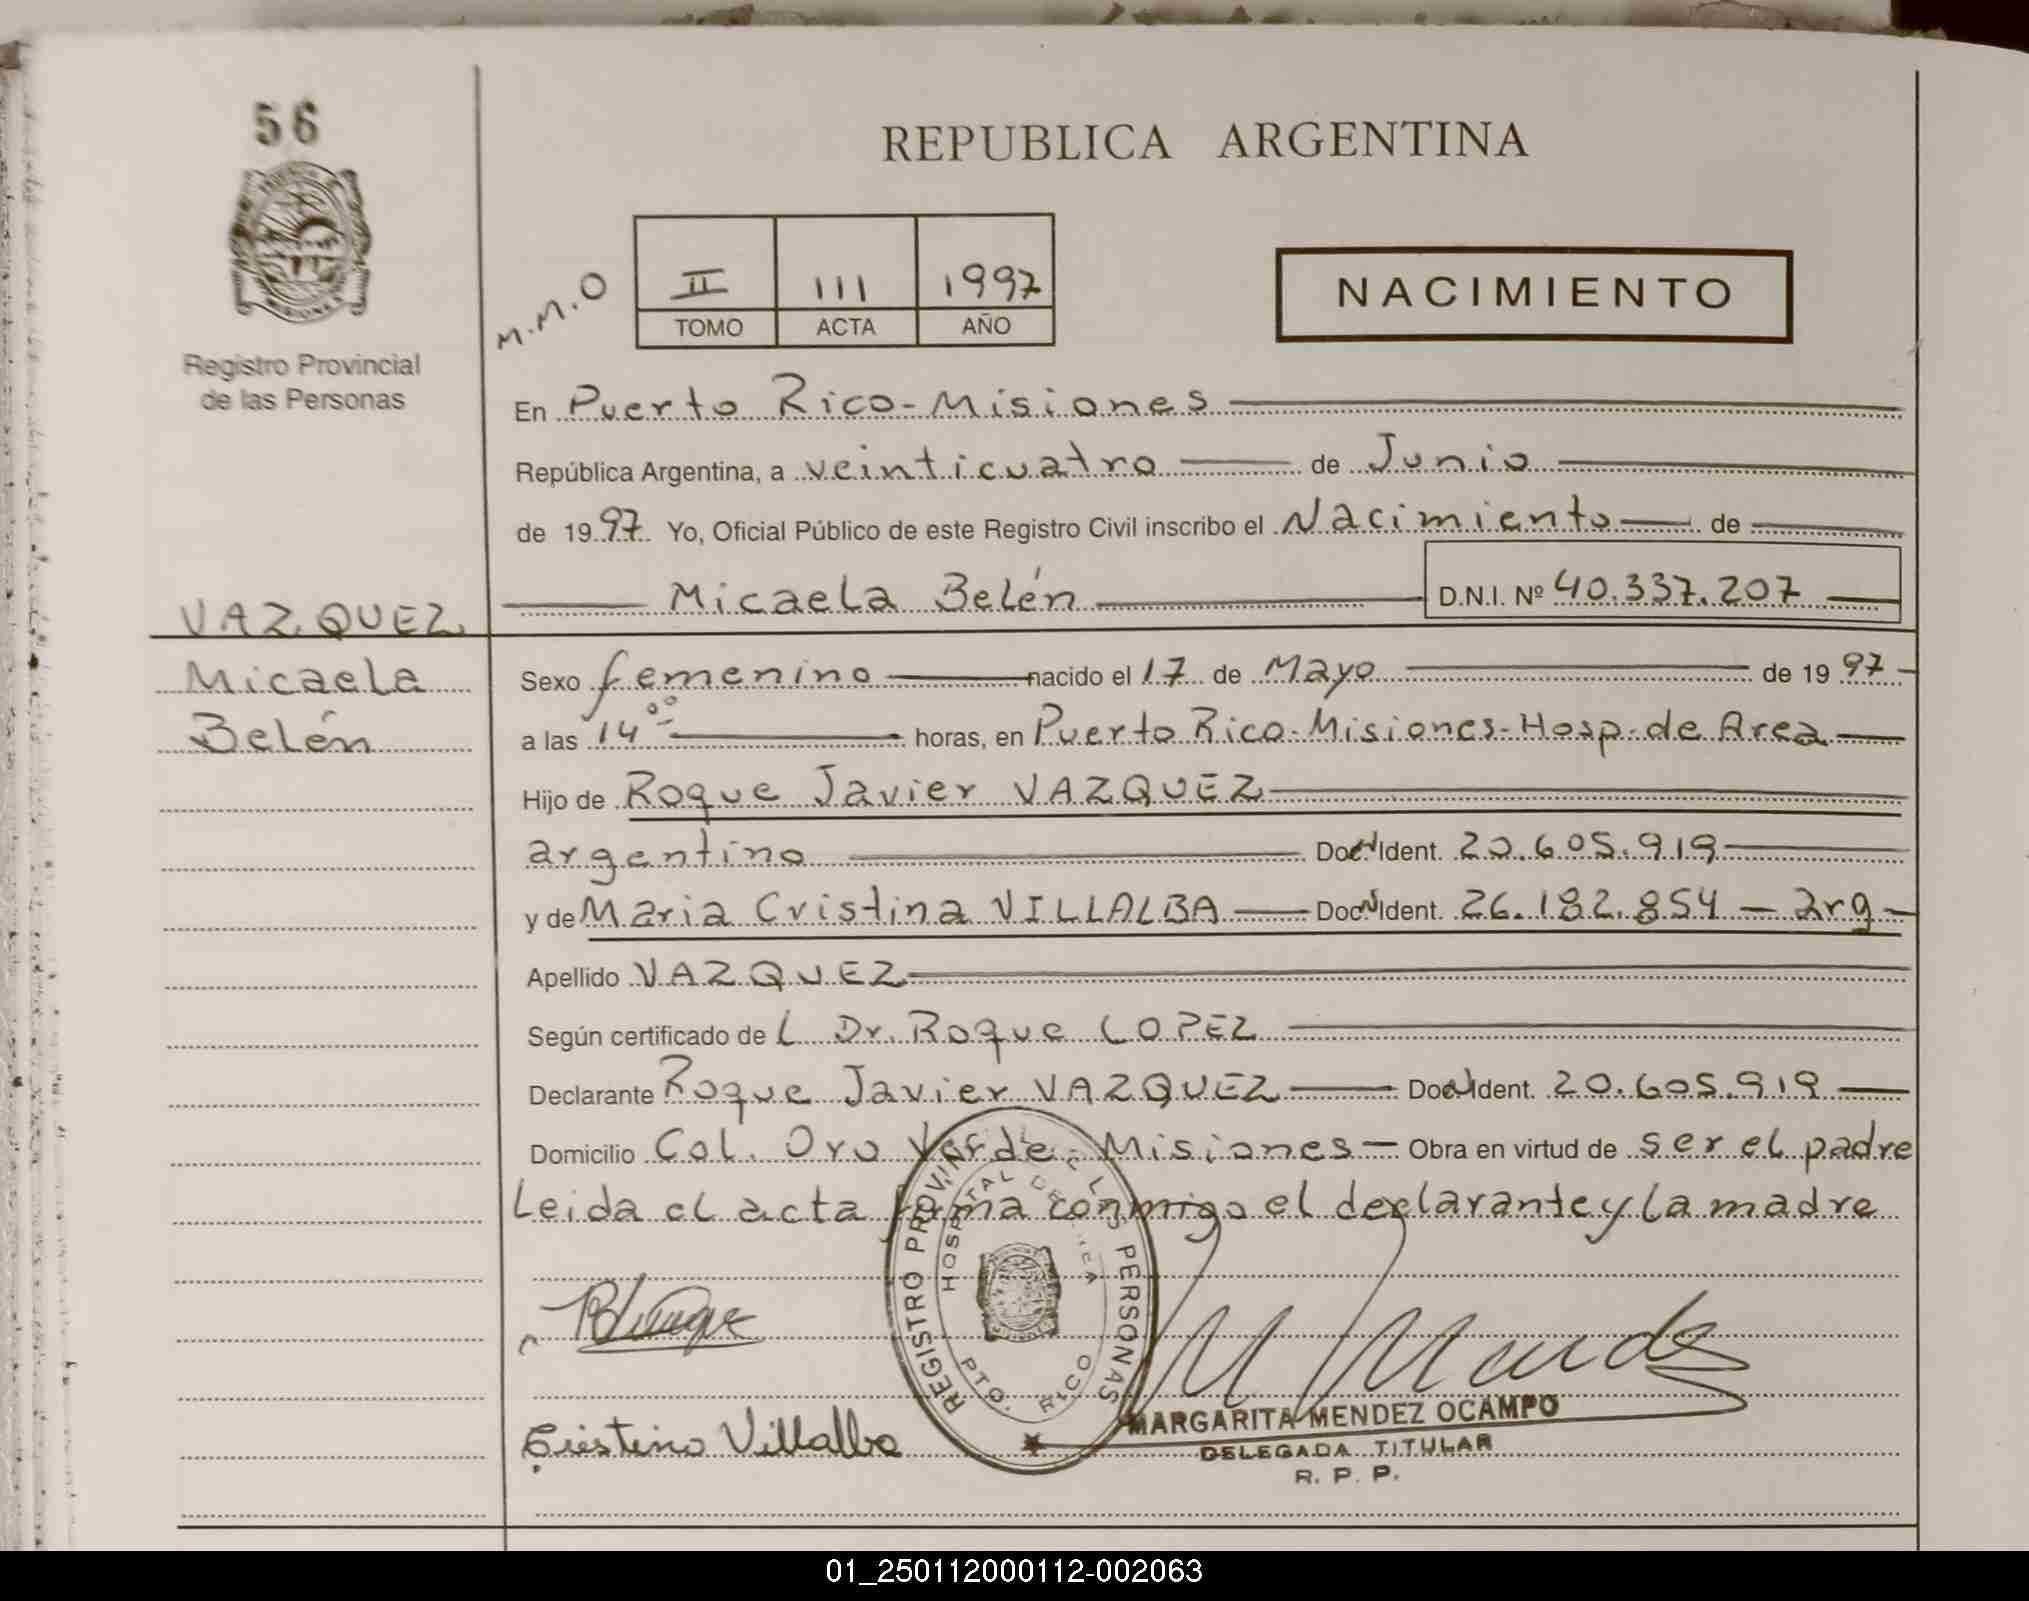 56
REPUBLICA ARGENTINA
M.M.O
II 111 1997
TOMO ACTA AÑO
NACIMIENTO
Registro Provincial
de las Personas
En Puerto Rico-Misiones
República Argentina, a veinticuatro de Junio
de 1997 Yo, Oficial Público de este Registro Civil inscribo el Nacimiento de
Micaela Belén D.N.I. Nº 40.337.207
VAZQUEZ
Micaela
Belén
Sexo femenino nacido el 17 de Mayo de 1997
a las 14 00 horas, en Puerto Rico-Misiones-Hosp. de Area
Hijo de Roque Javier VAZQUEZ
argentino Doc. N Ident. 20.605.919
y de Maria Cristina VILLALBA Doc. N Ident. 26.182.854 - arg
Apellido VAZQUEZ
Según certificado de L Dr. Roque LOPEZ
Declarante Roque Javier VAZQUEZ Doc. N Ident. 20.605.919
Domicilio Col. Oro Verde - Misiones - Obra en virtud de ser el padre
Leida el acta firma conmigo el declarante y la madre
REGISTRO PROVINCIAL DE LAS PERSONAS
HOSPITAL DE
PTO. RICO
Cristina Villalba
MARGARITA MENDEZ OCAMPO
DELEGADA TITULAR
R. P. P.
01_250112000112-002063